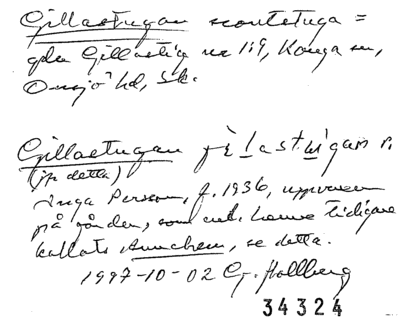 Gillastugan scoutstuga =
gda Gillastig nr 1:9, Konga sn,
Onsjö hd, Sk.
Gillastugan jè l a st ɯ gan r.
(jfr detta)
Inga Persson, f. 1936, uppvuxen
på gården, som enl. henne tidigare
kallats Annehem, se detta.
1997-10-02 G. Hallberg
34324